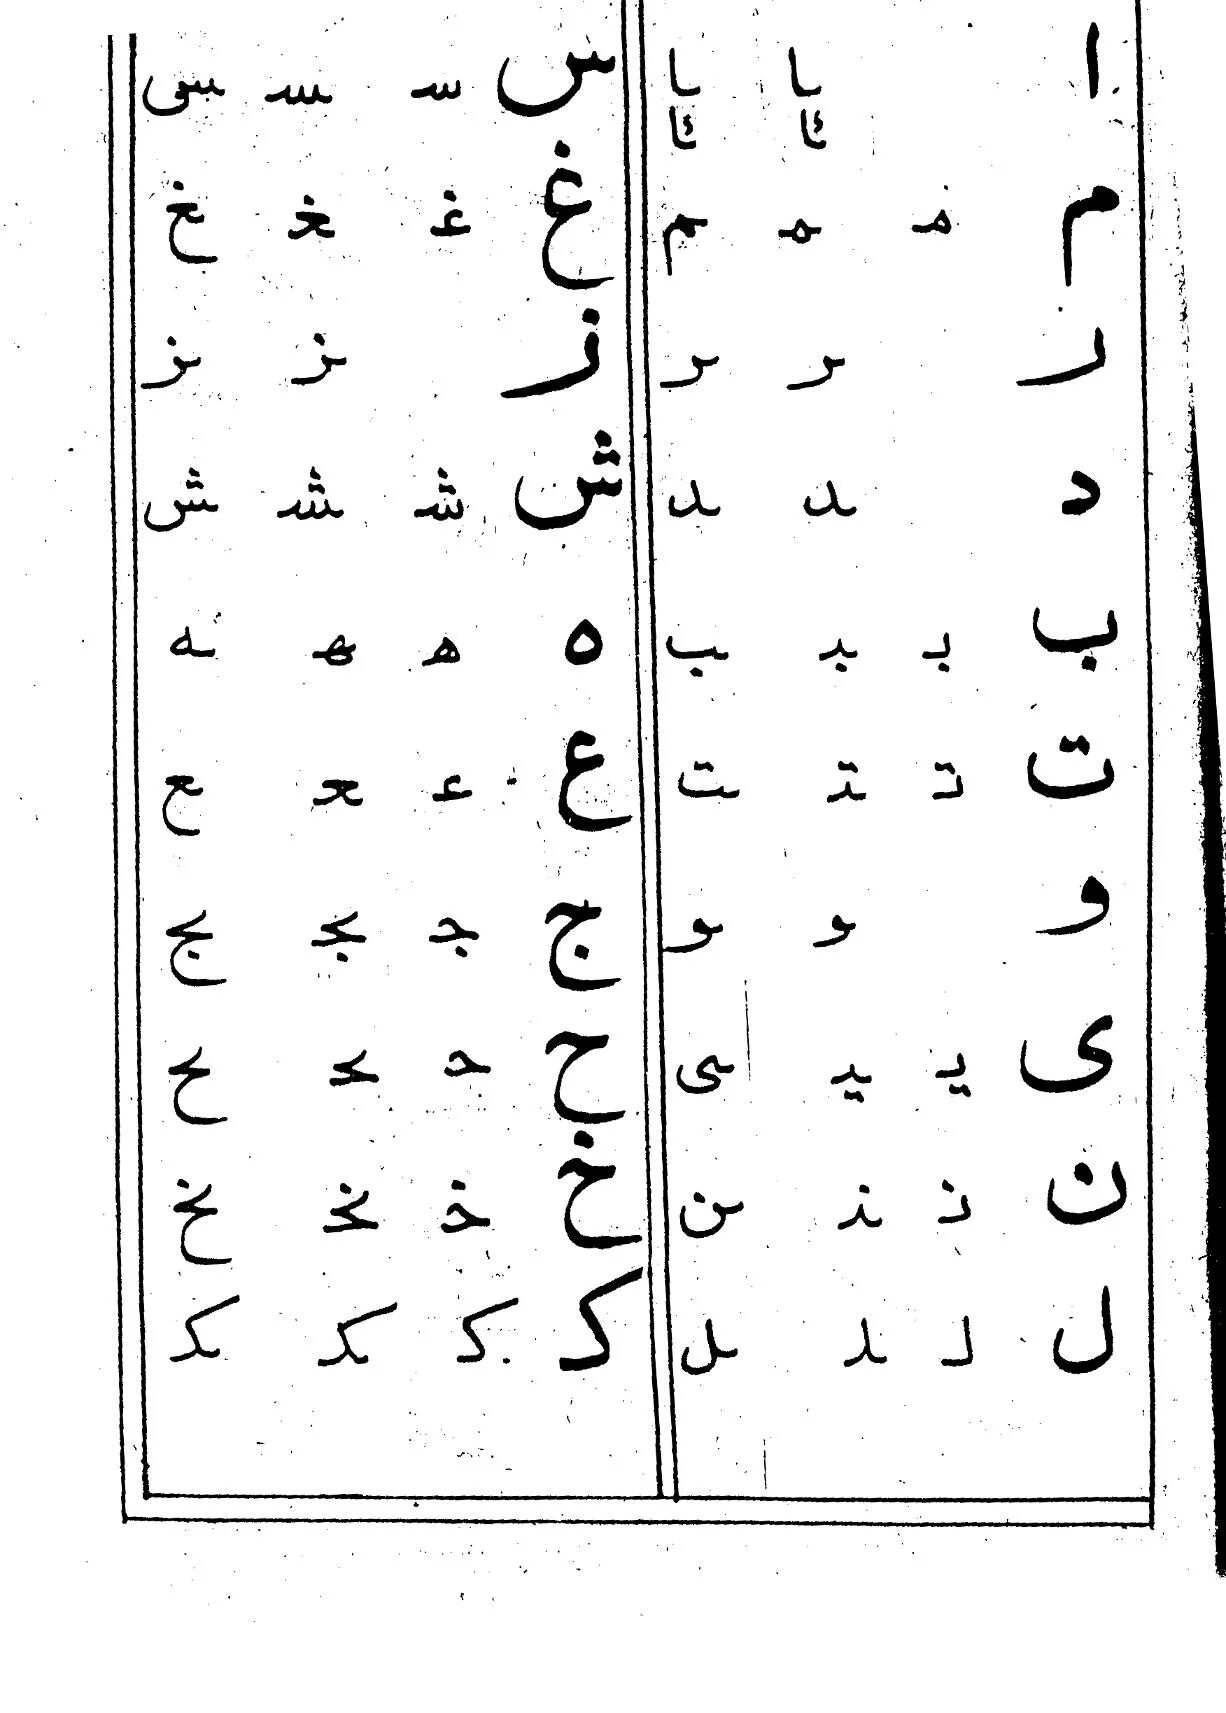 ا ـا ـا
ئا ئا
م مـ ـمـ ـم
ر ـر ـر
د ـد ـد
ب بـ ـبـ ـب
ت تـ ـتـ ـت
و ـو ـو
ى یـ ـیـ ـى
ن نـ ـنـ ـن
ل لـ ـلـ ـل
س سـ ـسـ ـس
غ غـ ـغـ ـغ
ز ـز ـز
ش شـ ـشـ ـش
ه هـ ـهـ ـه
ع عـ ـعـ ـع
ج جـ ـجـ ـج
ح حـ ـحـ ـح
خ خـ ـخـ ـخ
ک کـ ـکـ ـک